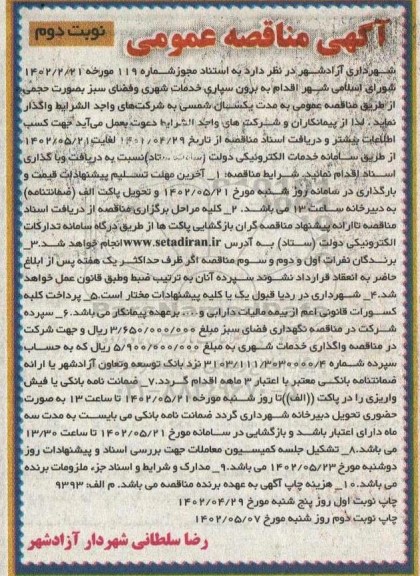 آگهی مناقصه عمومی
نوبت دوم
شهرداری آزادشهر در نظر دارد به استناد مجوزشماره ۱۱۹ مورخه ۱۴۰۲/۲/۲۱
شورای اسلامی شهر اقدام به برون سپاری خدمات شهری وفضای سبز بصورت حجمی
از طریق مناقصه عمومی به مدت یکسال شمسی به شرکت‌های واجد الشرایط واگذار
نماید . لذا از پیمانکاران و شرکت های واجد الشرایط دعوت بعمل می‌آید جهت کسب
اطلاعات بیشتر و دریافت اسناد مناقصه از تاریخ ۱۴۰۲/۰۴/۲۹ لغایت ۱۴۰۲/۰۵/۲۱
از طریق سامانه خدمات الکترونیکی دولت (سامانه ستاد)نسبت به دریافت وبا گذاری
اسناد اقدام نمایند. شرایط مناقصه: ۱_ آخرین مهلت تسلیم پیشنهادات قیمت و
بارگذاری در سامانه روز شنبه مورخ ۱۴۰۲/۰۵/۲۱ و تحویل پاکت الف (ضمانتنامه)
به دبیرخانه ساعت ۱۳ می باشد. ۲_ کلیه مراحل برگزاری مناقصه از دریافت اسناد
مناقصه تاارائه پیشنهاد مناقصه گران بازگشایی پاکت ها از طریق درگاه سامانه تدارکات
الکترونیکی دولت (ستاد) به آدرس www.setadiran.ir انجام خواهد شد.۳_
برندگان نفرات اول و دوم و سوم مناقصه اگر ظرف حداکثر یک هفته پس از ابلاغ
حاضر به انعقاد قرارداد نشوند سپرده آنان به ترتیب ضبط وطبق قانون عمل خواهد
شد.۴_ شهرداری در ردیا قبول یک یا کلیه پیشنهادات مختار است.۵_ پرداخت کلیه
کسورات قانونی اعم از بیمه مالیات دارایی و.... برعهده پیمانکار می باشد.۶_ سپرده
شرکت در مناقصه نگهداری فضای سبز مبلغ ۳/۶۵۰/۰۰۰/۰۰۰ ریال و جهت شرکت
در مناقصه واگذاری خدمات شهری به مبلغ ۵/۹۰۰/۰۰۰/۰۰۰ ریال که به حساب
سپرده شماره ۳۱۰۳/۱۱۱/۳۰۳۰۰۰۰/۴ نزد بانک توسعه وتعاون آزادشهر یا ارائه
ضمانتنامه بانکی معتبر با اعتبار ۳ ماهه اقدام گردد.۷_ ضمانت نامه بانکی یا فیش
واریزی را در پاکت ((الف))تا روز شنبه مورخه ۱۴۰۲/۰۵/۲۱ تا ساعت ۱۳ به صورت
حضوری تحویل دبیرخانه شهرداری گردد ضمانت نامه بانکی می بایست به مدت سه
ماه دارای اعتبار باشد و بازگشایی در سامانه مورخ ۱۴۰۲/۰۵/۲۱ تا ساعت ۱۳/۳۰
می باشد.۸_ تشکیل جلسه کمیسیون معاملات جهت بررسی اسناد و پیشنهادات روز
دوشنبه مورخ ۱۴۰۲/۰۵/۲۳ می باشد.۹_ مدارک و شرایط و اسناد جزء ملزومات برنده
می باشد.۱۰_ هزینه چاپ آگهی به عهده برنده مناقصه می باشد. م الف: ۹۳۹۳
چاپ نوبت اول روز پنج شنبه مورخ ۱۴۰۲/۰۴/۲۹
چاپ نوبت دوم روز شنبه مورخ ۱۴۰۲/۰۵/۰۷
رضا سلطانی شهردار آزادشهر